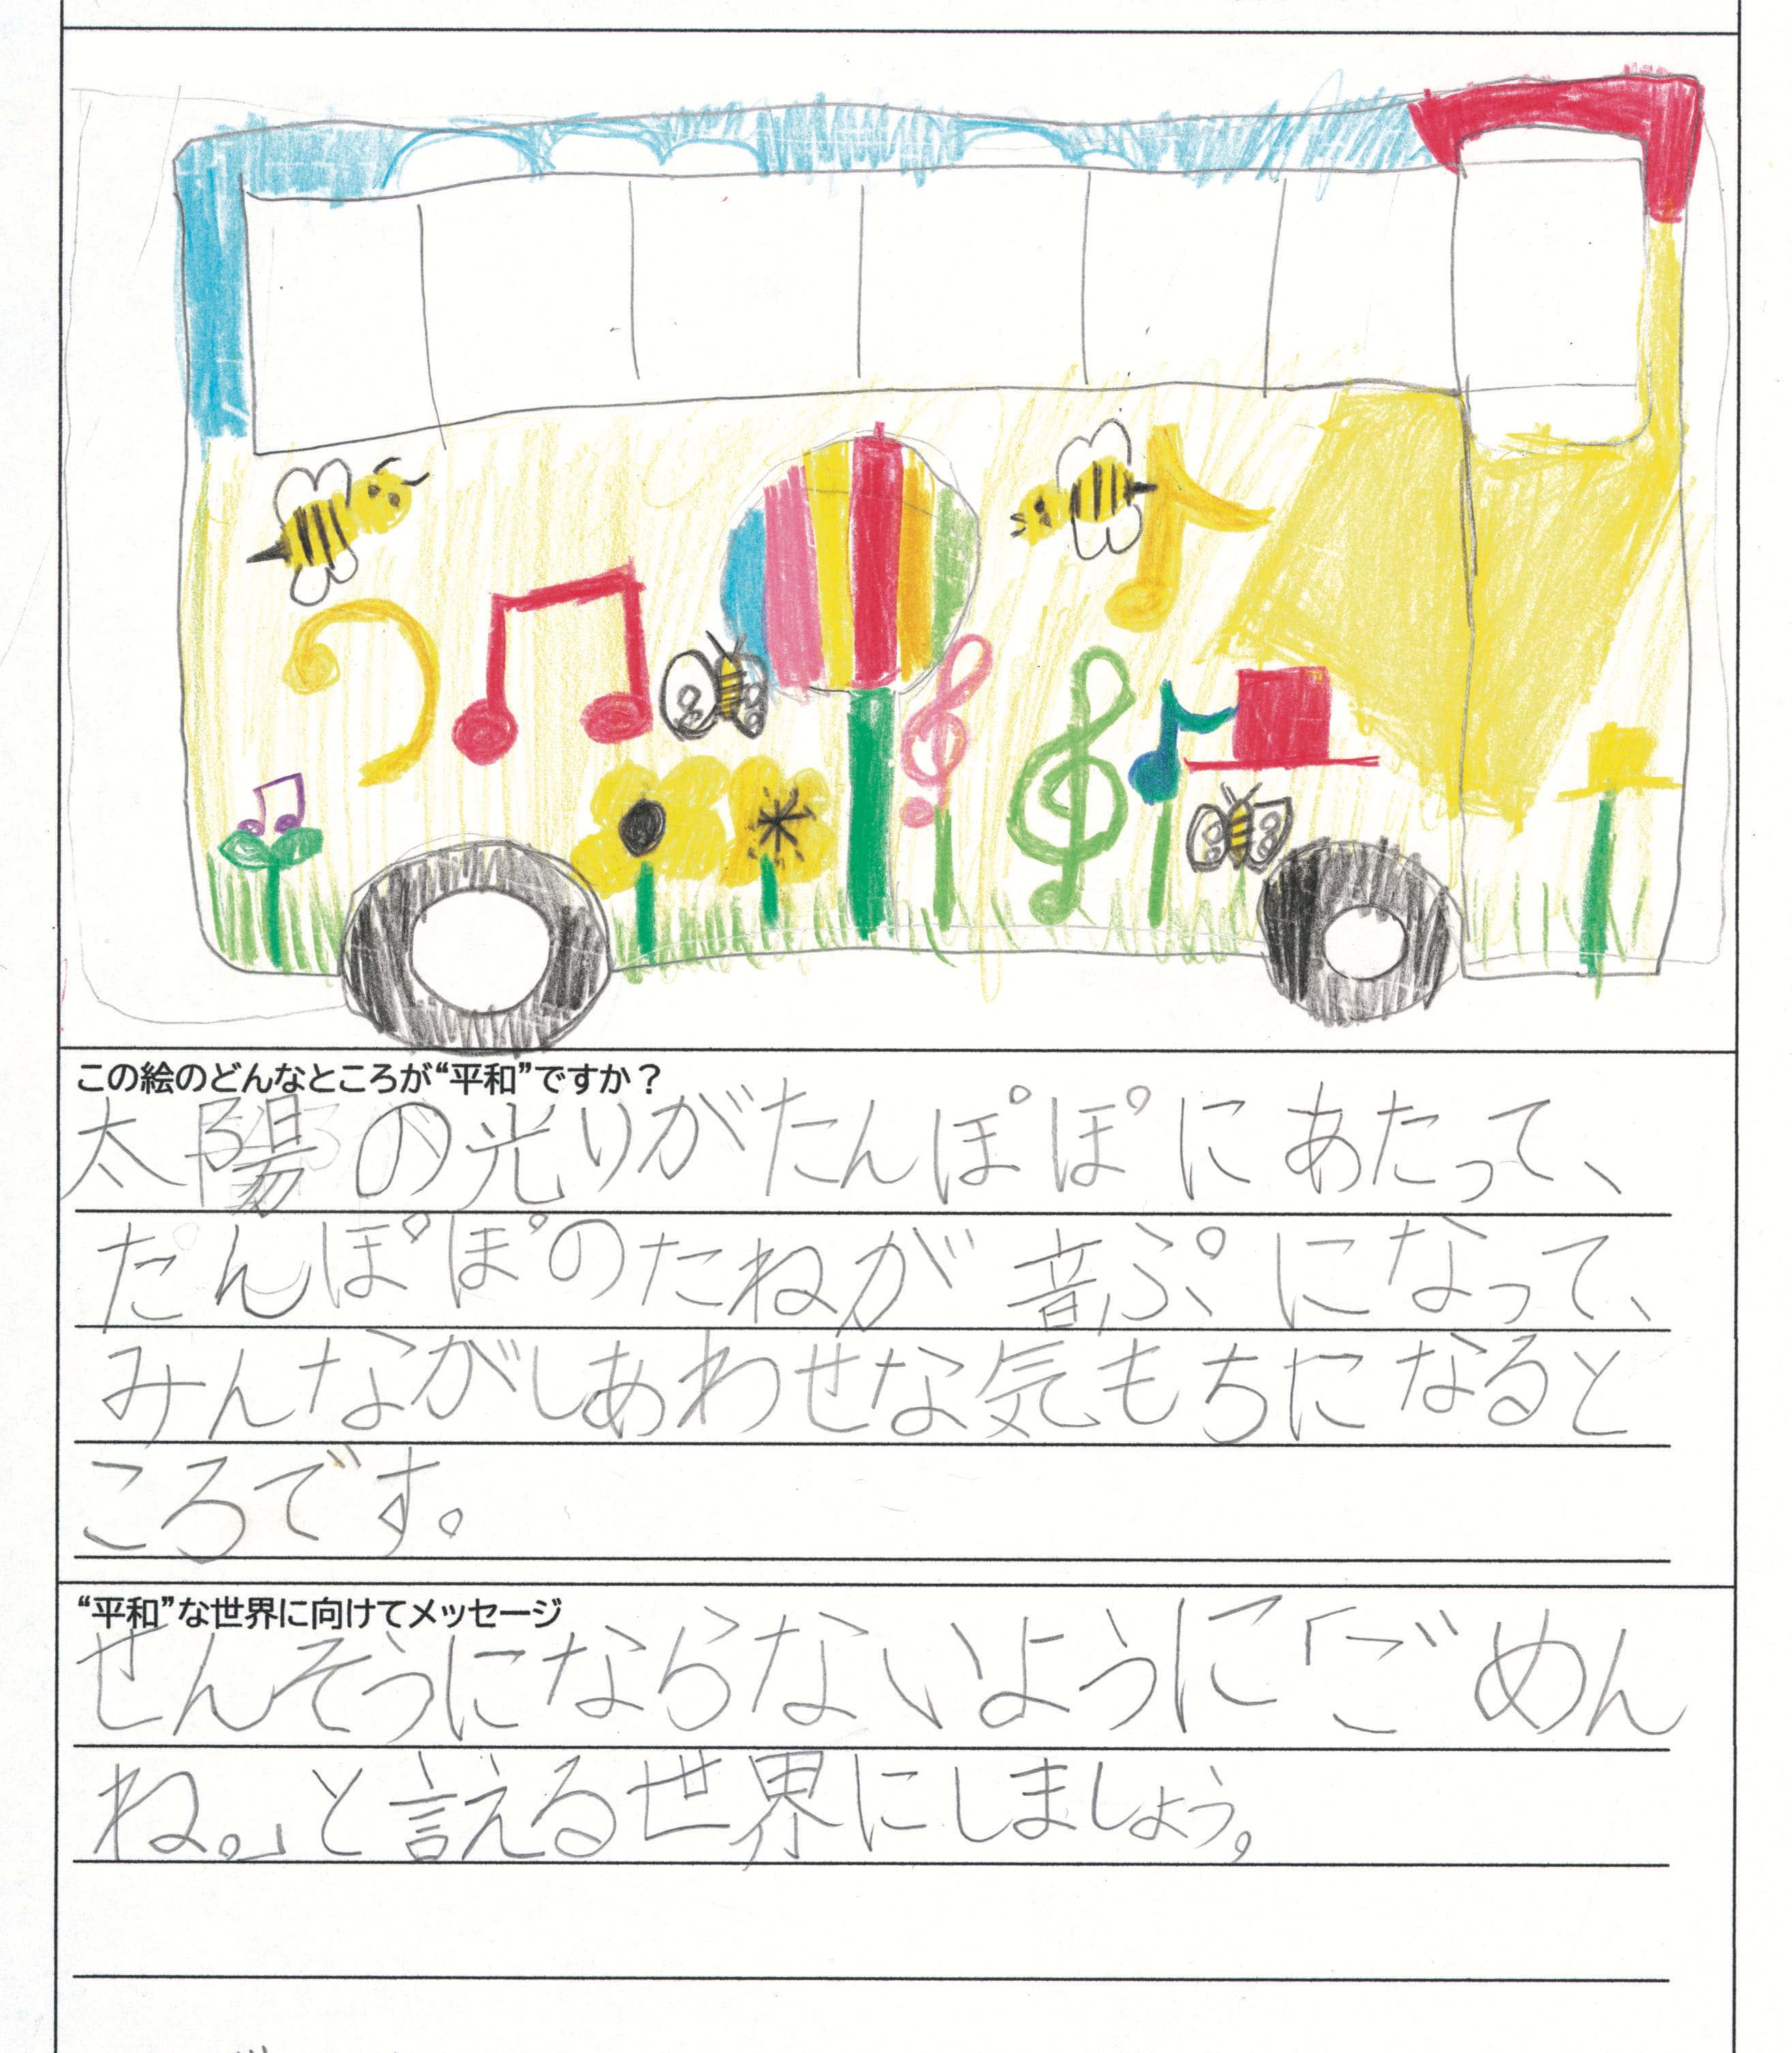 この絵のどんなところが“平和”ですか？
太陽の光りがたんぽぽにあたって、
たんぽぽのたねが音ぷになって、
みんながしあわせな気もちになると
ころです。
“平和”な世界に向けてメッセージ
せんそうにならないように「ごめん
ね。」と言える世界にしましょう。